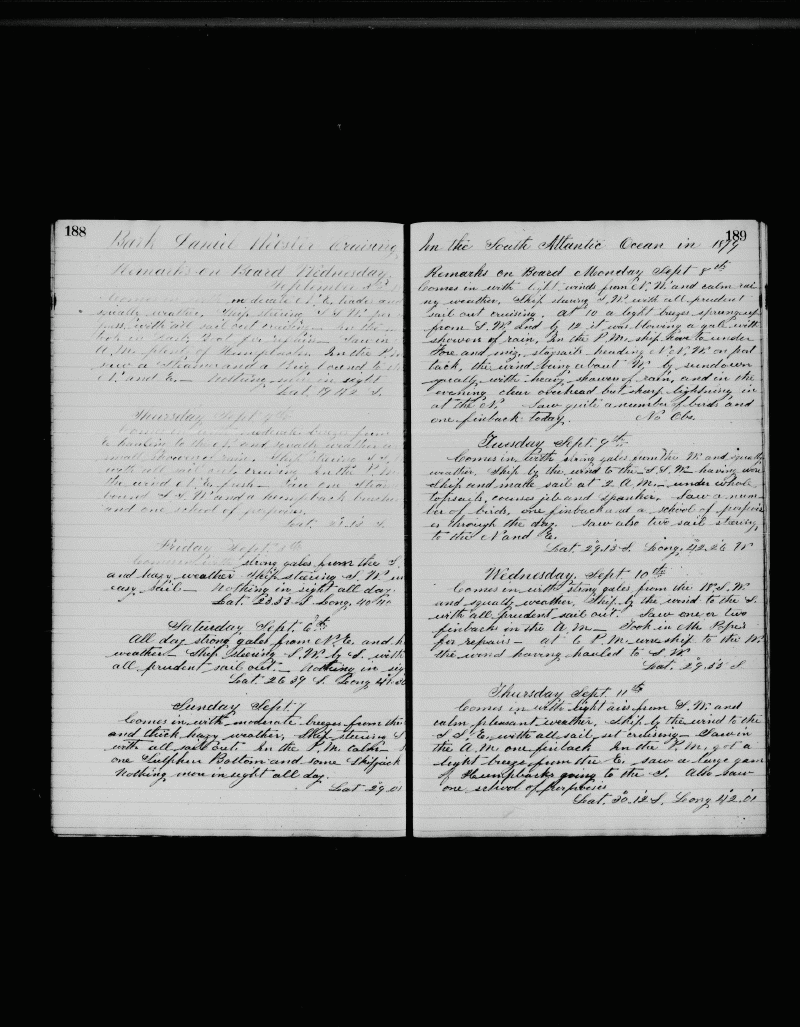 188
Bark Daniel Webster cruising
Remarks on Board Wednesday
September 3rd
moderate N. E. trades and
squally weather. Ship steering S. S. W.
with all sail out cruising
Saw in
A. M. plenty of Humpbacks. In the P. M.
saw a Steamer and a Brig bound to
N. and E. Nothing more in sight
Lat. S.
Thursday Sept 4th
breezes from
to the N. and squally weather
small showers of rain. Ship steering S. S.
with all sail out cruising In the P. M.
the wind N. E. fresh
bound S. S. W. and a hump back
and one school of porpoises.
Lat. S.
Friday Sept. 5th
Comes in with strong gales from the S.
and hazy weather Ship steering S. W.
easy sail — Nothing in sight all day.
Lat. 23.53 S. Long. 40.40
Saturday Sept. 6th
All day strong gales from N. E. and
weather — Ship steering S. W. by S. with
all prudent sail out. — Nothing in sig
Lat. 26.39 S. Long 41.
Sunday Sept. 7
Comes in with moderate breezes from the
and thick hazy weather, Ship steering S
with all sail out. In the P. M. calm —
one Sulphur Bottom and some Skipjack
Nothing more in sight all day.
Lat 29.01
189
In the South Atlantic Ocean in 1879
Remarks on Board Monday Sept 8th
Comes in with light winds from N. W. and calm rai-
ny weather, Ship steering S. W. with all prudent
sail out cruising. At 10 a light breeze sprung up
from S. W. and by 12 it was blowing a gale with
showers of rain, In the P. M. ship hove to under
Fore and miz. staysails heading N. N. W. on port
tack, the wind being about W. by sundown
squally with heavy showers of rain, and in the
evening clear overhead but sharp lightning in
at the N. Saw quite a number of birds and
one finback today. No Obs.
Tuesday Sept. 9th
Comes in with strong gales from the W. and squally
weather, Ship by the wind to the S. S. W. having wore
ship and made sail at 2 A. M. — under whole
topsails, courses jib and spanker. Saw a num-
ber of birds, one finback and a school of porpois-
es through the day. Saw also two sail steering
to the N and E.
Lat. 29.13 S. Long. 42.26 W
Wednesday, Sept. 10th
Comes in with strong gales from the W. S. W.
and squally weather, Ship by the wind to the S.
with all prudent sail out. Saw one or two
finback in the A. M. — Took in
for repairs — at 6 P. M. wore ship to the W.
the wind having hauled to S. W.
Lat. 29.55 S
Thursday Sept. 11th
Comes in with light airs from S. W. and
calm pleasant weather. Ship by the wind to the
S. S. E. with all sail set cruising — Saw in
the A. M. one finback In the P. M. got a
light breeze from the E. saw a large gam
of Humpbacks going to the S. Also saw
one school of porpoises
Lat. 30.12 S. Long 42.01